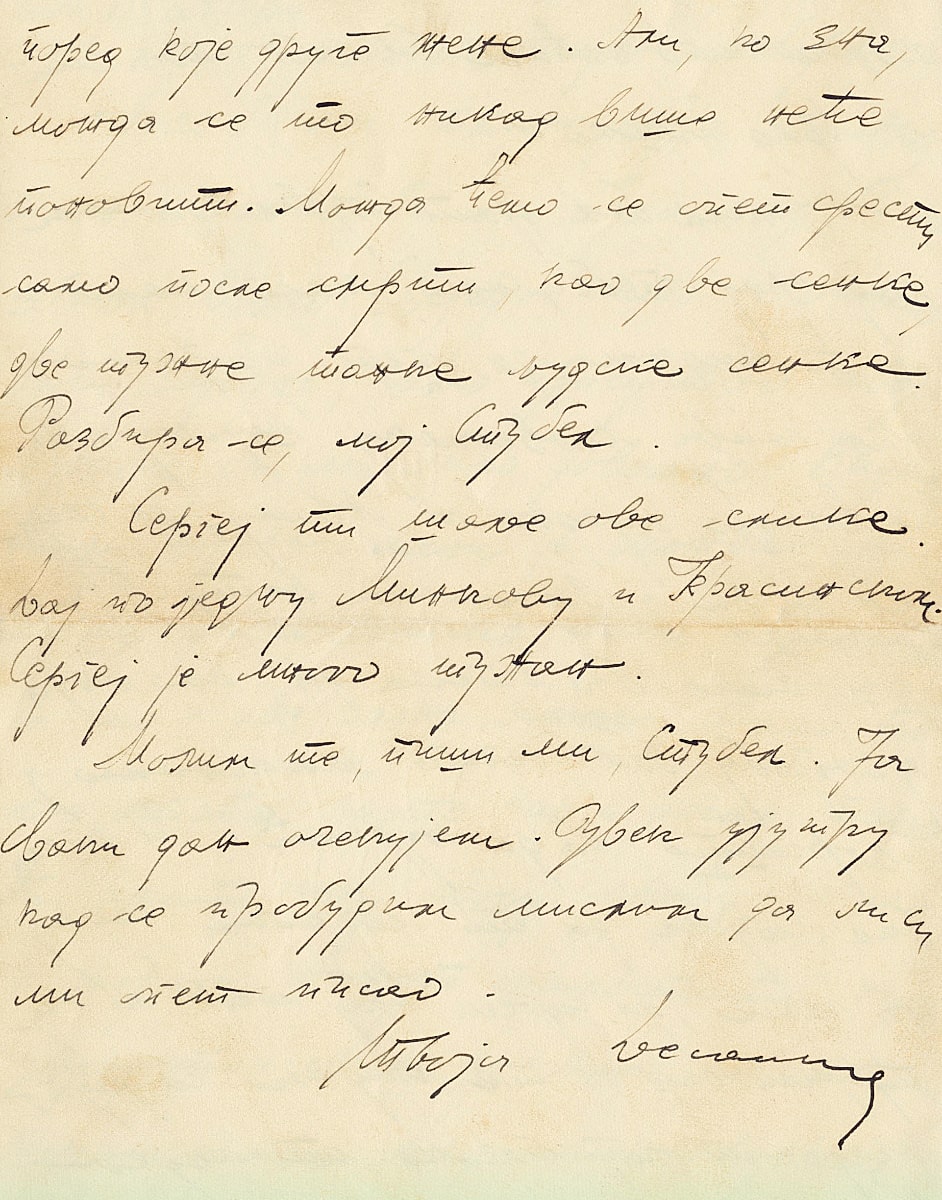 поред које друге жене. Али, ко зна,
можда се то никад више неће
поновити. Можда ћемо се опет срести
само после смрти, као две сенке,
две тужне танке људске сенке.
Разбира-се, мој Стубек.
Сергеј ти шаље ове слике.
Дај по једну Минкову и Красинском.
Сергеј је много тужан.
Молим те, пиши ми, Стубек. Ја
сваки дан очекујем. Увек ујутру
кад се пробудим мислим да ли си
ми опет писао.
Твоја Десанка